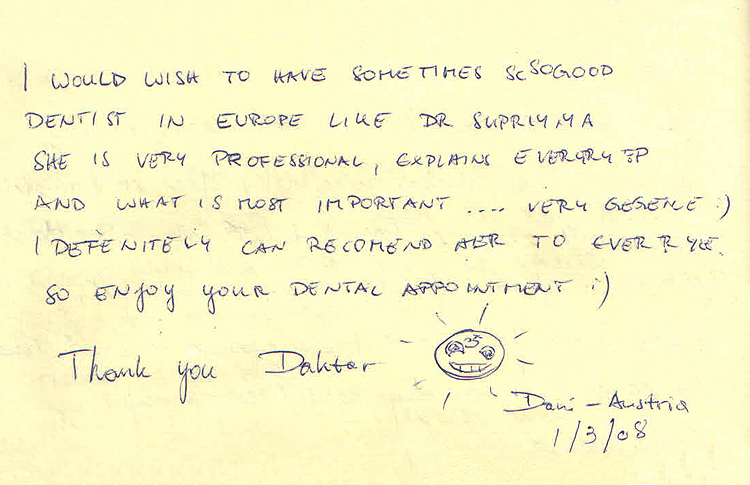 I WOULD WISH TO HAVE SOMETIMES SCSOGOOD
DENTIST IN EUROPE LIKE DR SUPRIYMA
SHE IS VERY PROFESSIONAL, EXPLAINS
AND WHAT IS MOST IMPORTANT .... VERY :)
I DEFENITELY CAN RECOMEND HER TO
SO ENJOY YOUR DENTAL APPOINTMENT :)
Thank you Daktar
Dani - Austria
1/3/08